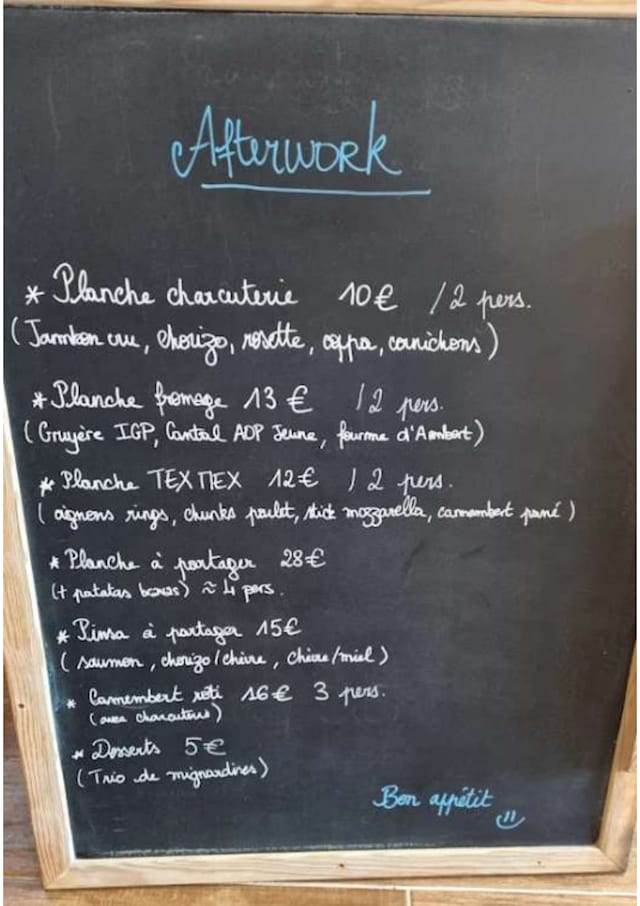 Afterwork
* Planche charcuterie 10€ / 2 pers.
(Jambon cru, chorizo, rosette, coppa, cornichons)
* Planche fromage 13€ / 2 pers.
(Gruyère IGP, Cantal AOP Jeune, fourme d'Ambert)
* Planche TEX MEX 12€ / 2 pers.
(oignons rings, chunks poulet, stick mozzarella, camembert pané)
* Planche à partager 28€
(+ patatas bravas) ≈ 4 pers.
* Pinsa à partager 15€
(saumon, chorizo/chèvre, chèvre/miel)
* Camembert roti 16€ 3 pers.
(avec charcuteries)
* Desserts 5€
(Trio de mignardises)
Bon appétit